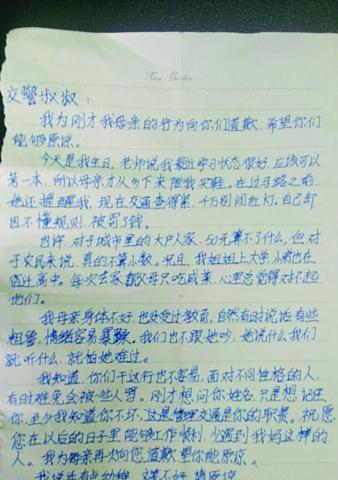 Garden
交警叔叔：
我为刚才我母亲的行为向你们道歉，希望你们
能够原谅。
今天是我生日，老师说我最近学习状态很好，应该可以
第一本，所以母亲才从乡下来陪我买鞋。在过马路之前，
她还提醒我，现在交通查得紧，千万别闯红灯，自己却
因不懂规则，被罚了钱。
也许，对于城市里的大户人家，50元算不了什么，但对
于农民来说，真的不算小数。况且，我姐姐上大学，小弟也在
高中。每次去家都父母只吃咸菜，心里总觉得对不起
他们。
我母亲身体不好，也没受过教育，自然有时说话有些
粗鲁，情绪容易暴躁。我们也不跟她吵，她说什么我们
就听什么，就怕她难过。
我知道，你们干这行也不容易，面对不同性格的人，
有时难免会被些人骂。刚才想问你姓名，只是想记住
你，至少我知道你不坏，这是管理交通是你的职责。祝愿
您在以后的日子里能够工作顺利，少遇到我妈这样的
人。我为母亲再次向您道歉，望你能原谅。